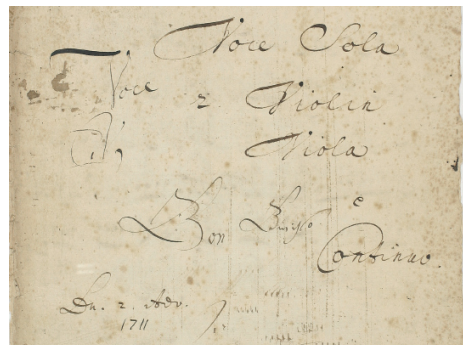 Voce Sola
Voce 2 Violin
Viola
e
Continuo.
Dn. 2. Adv.
1711